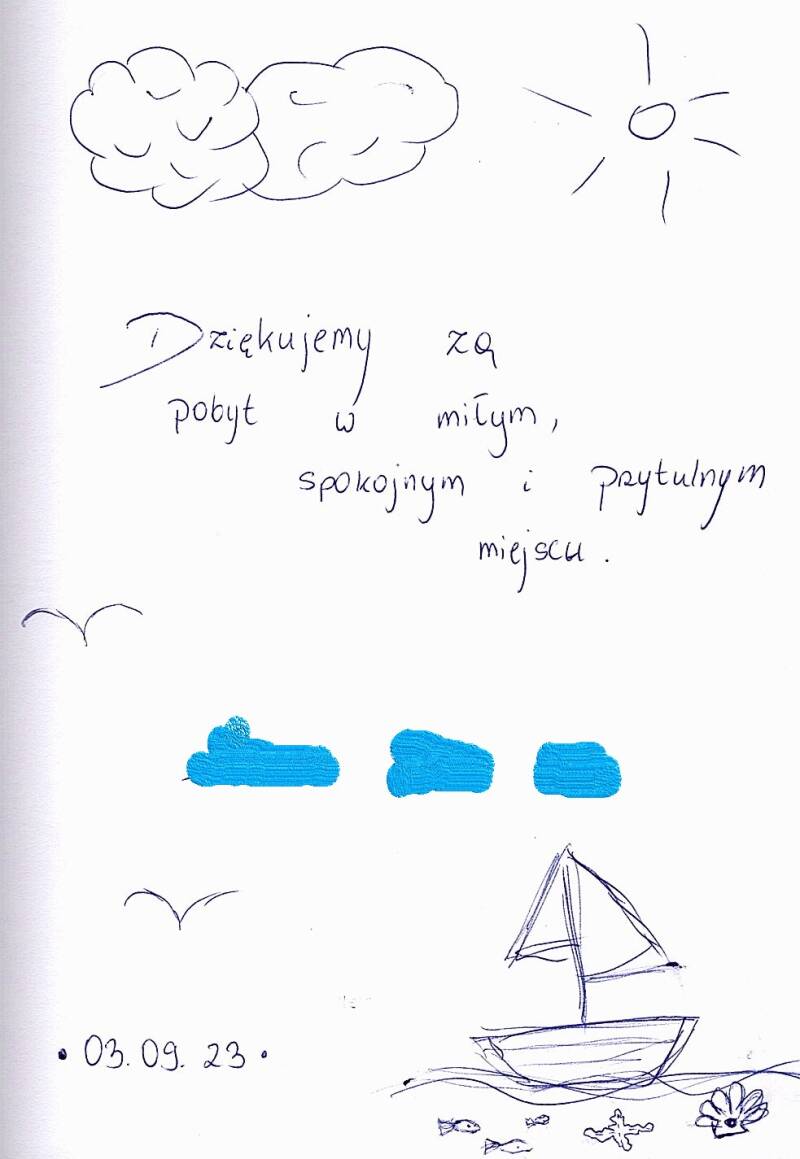 Dziękujemy za
pobyt w miłym,
spokojnym i przytulnym
miejscu.
• 03.09.23 •